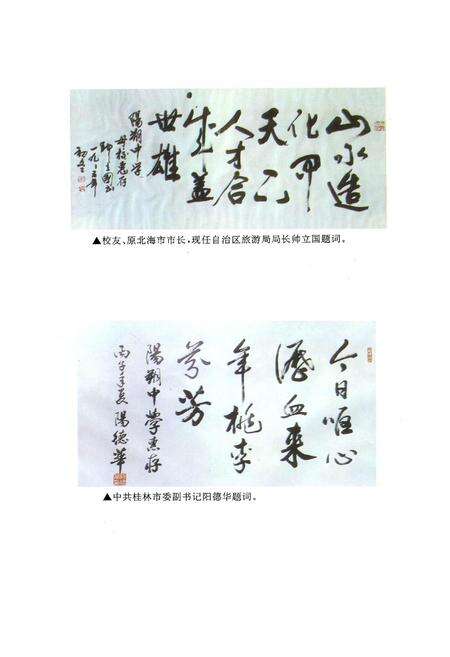 山水造
化甲
天下
人才合
生盖
世雄
陽朔中学
母校惠存
帅立国书
一九九六年
初夏
▲校友、原北海市市长,现任自治区旅游局局长帅立国题词。
今日唯心
瀝血来
年桃李
芬芳
陽朔中學惠存
丙子年夏 陽德華
▲中共桂林市委副书记阳德华题词。